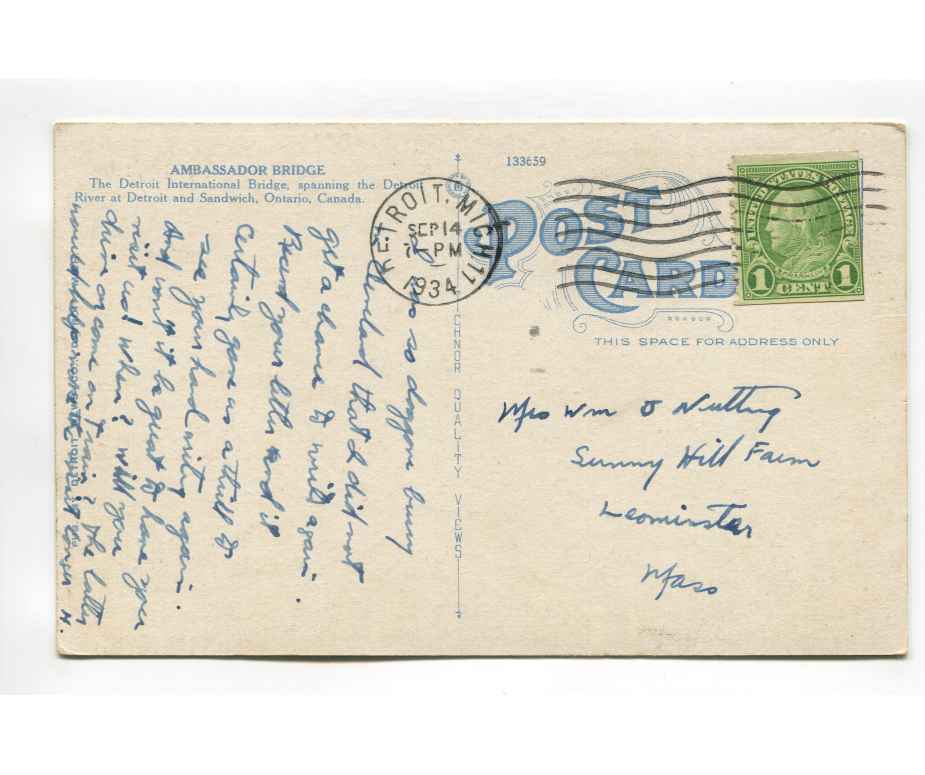 AMBASSADOR BRIDGE
The Detroit International Bridge, spanning the Detroit
River at Detroit and Sandwich, Ontario, Canada.
133659
DETROIT, MICH. 11
SEP 14
7- PM
1934
POST
CARD
THIS SPACE FOR ADDRESS ONLY
UNITED STATES POSTAGE
1 CENT 1
QUALITY VIEWS
was so doggone busy
that I did not
get a chance to write again.
Received your letter and it
certainly gave us a thrill to
see your hand writing again.
And won't it be great to have you
visit us! When? Will you
drive or come on train? The latter
longer H.
Mrs Wm J Nutting
Sunny Hill Farm
Leominster
Mass